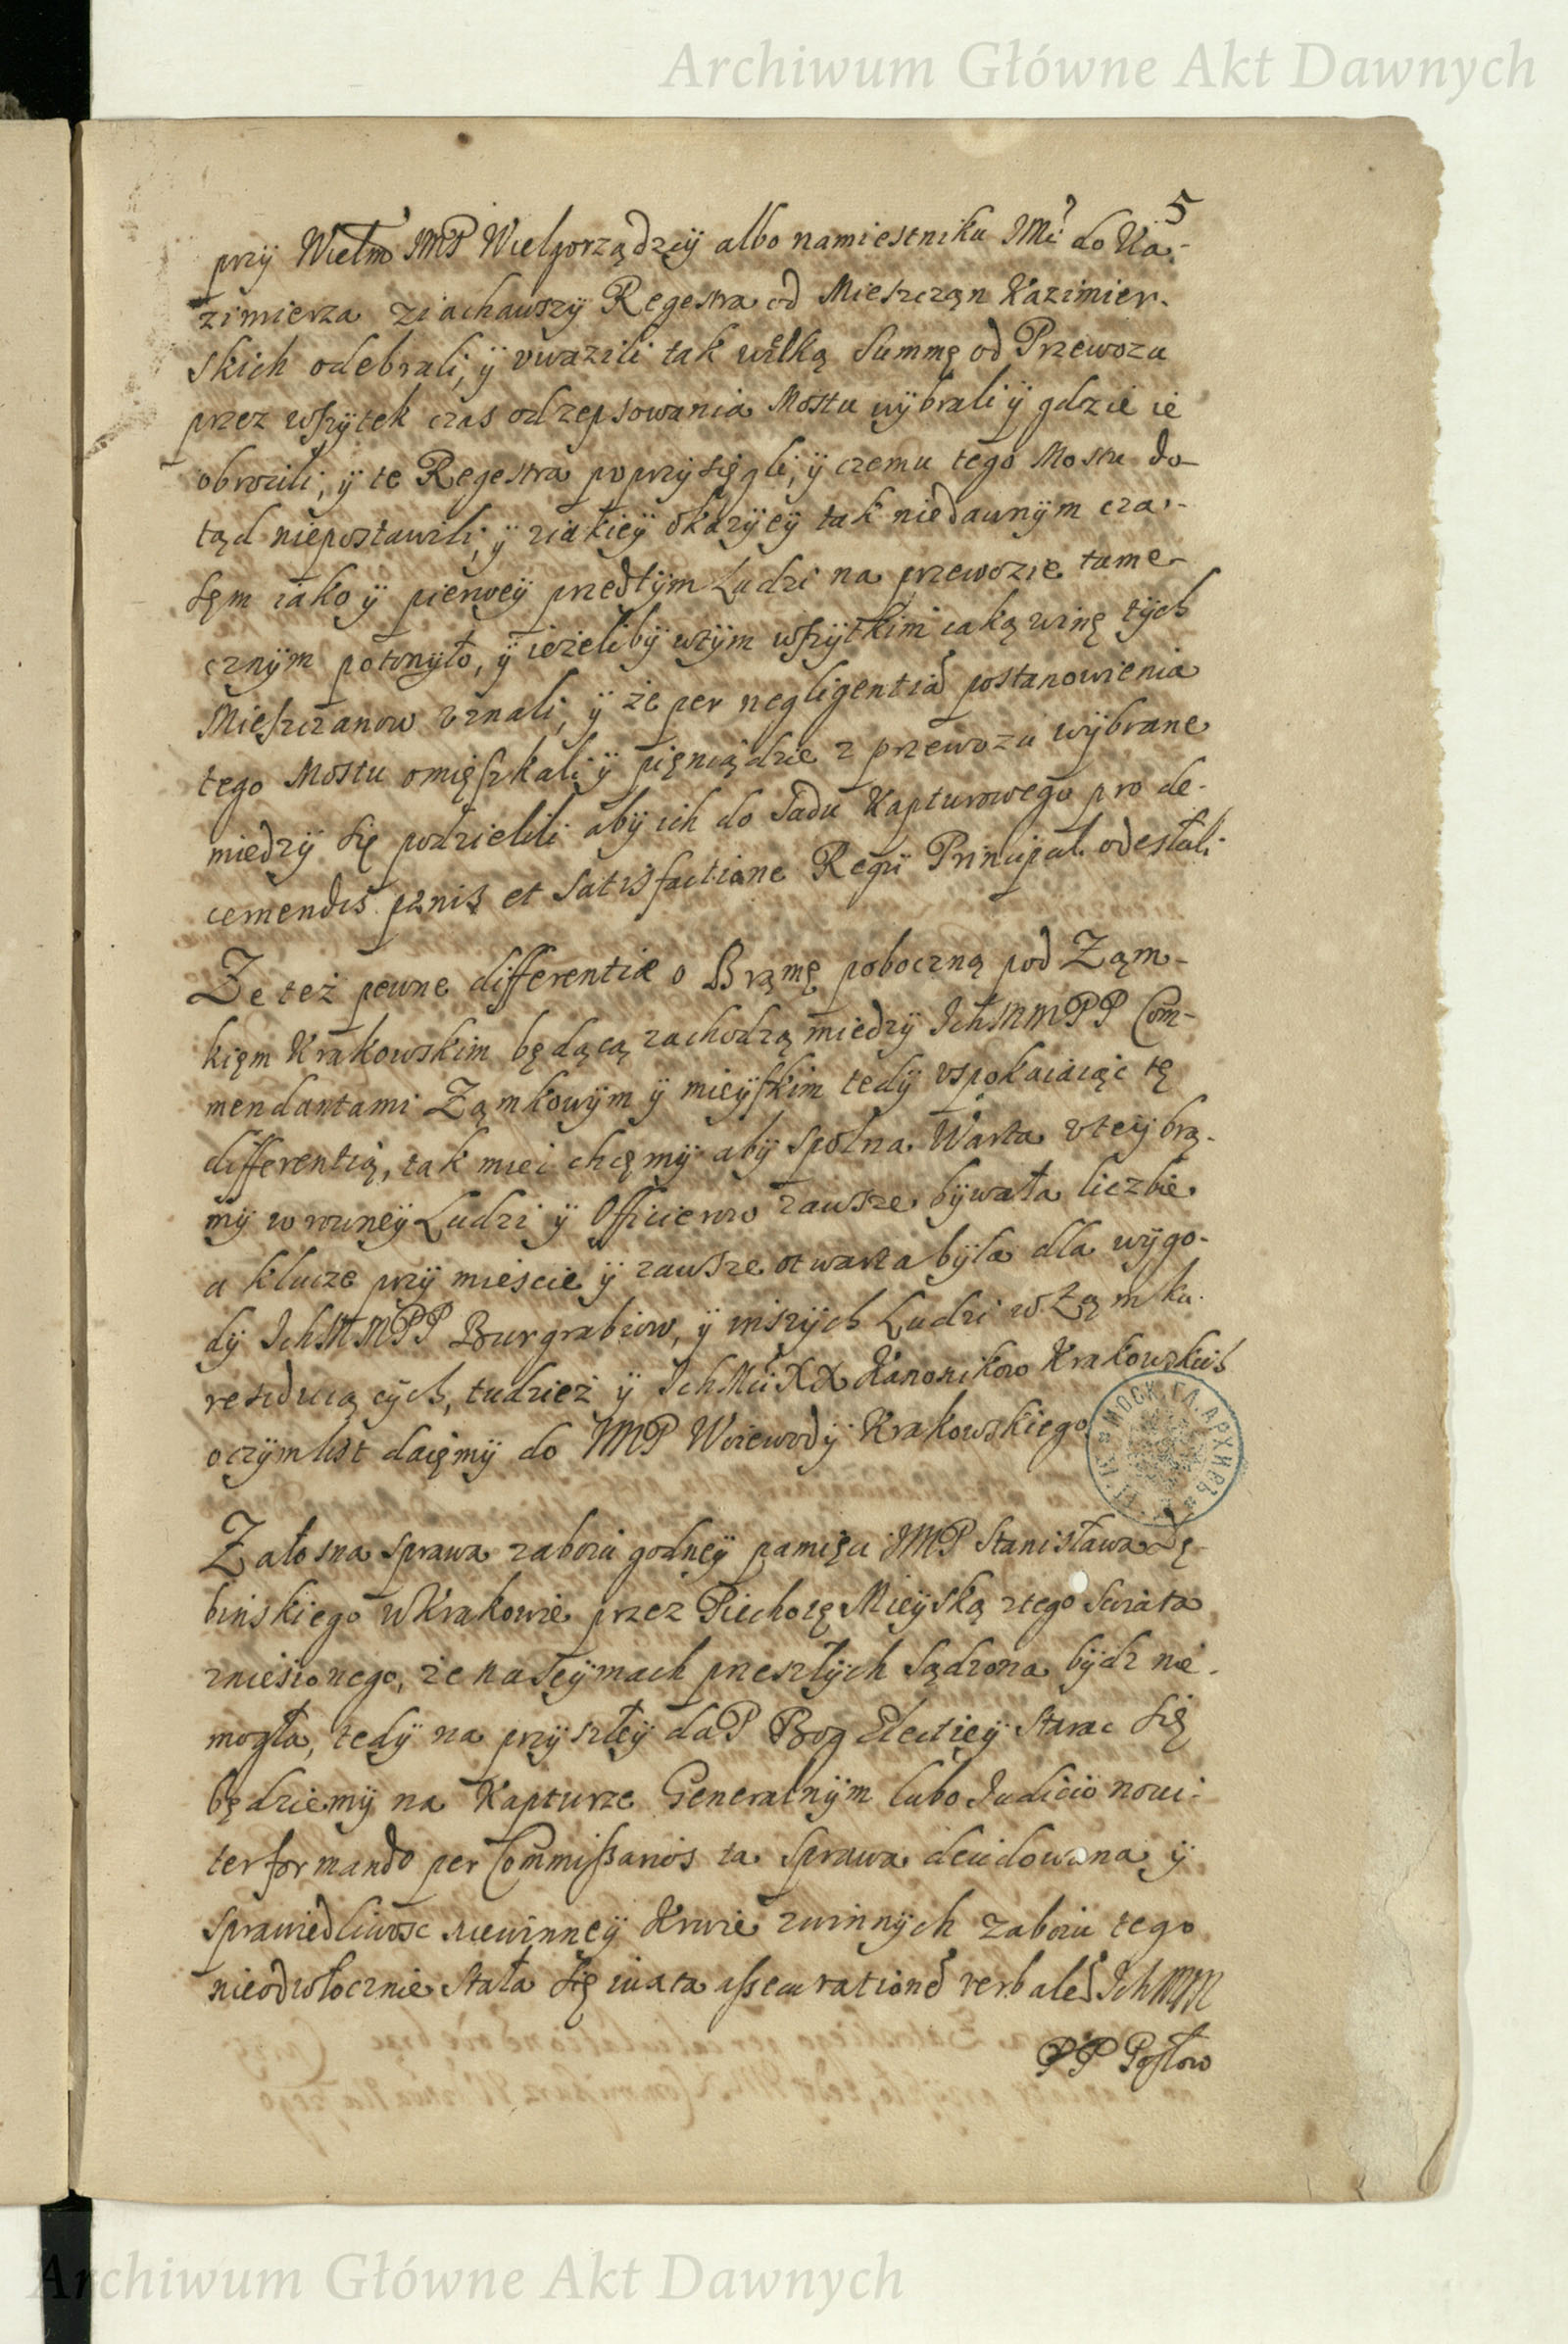 Archiwum Główne Akt Dawnych
5
przÿ Wielm JMP Wielgorządzcÿ albo namiestniku JMci do Ka-
zimierza ziachawszÿ Regestra od Mieszczan Kazimier-
skich odebrali, ÿ vwazili tak wielką Summę od Przewozu
przez wszÿtek czas od zepsowania Mostu wÿbrali ÿ gdzie ie
obrocili, ÿ te Regestra poprzÿsięgli, ÿ czemu tego Mostu do-
tąd niepostawili, ÿ ziakieÿ okazÿeÿ tak niedawnÿm cza-
sęm iako ÿ pierweÿ przedtÿm Ludzi na przewozie tame-
cznÿm potonÿło, ÿ ieżelibÿ wtÿm wszÿtkim iaką winę tÿch
Mieszczanow vznali, ÿ że per negligentiã postanowienia
tego Mostu omięszkali ÿ pięniądze z przewozu wÿbrane
miedzÿ się podzielili abÿ ich do Sadu Kapturowego pro de-
cernendis pænis et satisfactione Regÿ Principal. odesłali
Ze też pewne differentiæ o Bramę poboczną pod Ząm-
kięm Krakowskim będącą zachodzą miedzÿ IchMMPP Com-
mendantami Ząmkowÿm ÿ mieÿskim tedÿ vspokaiaiąc tę
differentią, tak miei chcęmÿ abÿ spolna Warta vteÿ bra-
mÿ w rowneÿ Ludzi ÿ Officierow zawsze bÿwała liczbie
a klucze przÿ miescie ÿ zawsze otwarta bÿła dla wÿgo-
dÿ IchMMPP Burgrabiow, ÿ inszÿch Ludzi w Ząmku
residuiącÿch, tudzież ÿ IchMci XX Kanonikow Krakowskich
oczÿm list daięmÿ do JMP Woiewodÿ Krakowskiego
Załosna sprawa zaboiu godneÿ pamięci JMP Stanisława Dę-
binskiego wKrakowie przez Piechotę Mieÿską ztego Swiata
zniesionego, że na Seÿmach przeszłÿch sądzona bÿdz nie-
mogła, tedÿ na przÿszłeÿ daP Bog Electieÿ starac się
będziemÿ na Kapturze Generalnÿm lubo Judicio novi-
ter formando per Commissarios ta sprawa decidowana ÿ
sprawiedliwosc niewinneÿ Krwie zwinnÿch zaboiu tego
nieodwłocznie stała się iuxta assecurationẽ verbalẽ IchMM
PP Posłow
МОСК. ГЛ. АРХИВЪ
Archiwum Główne Akt Dawnych